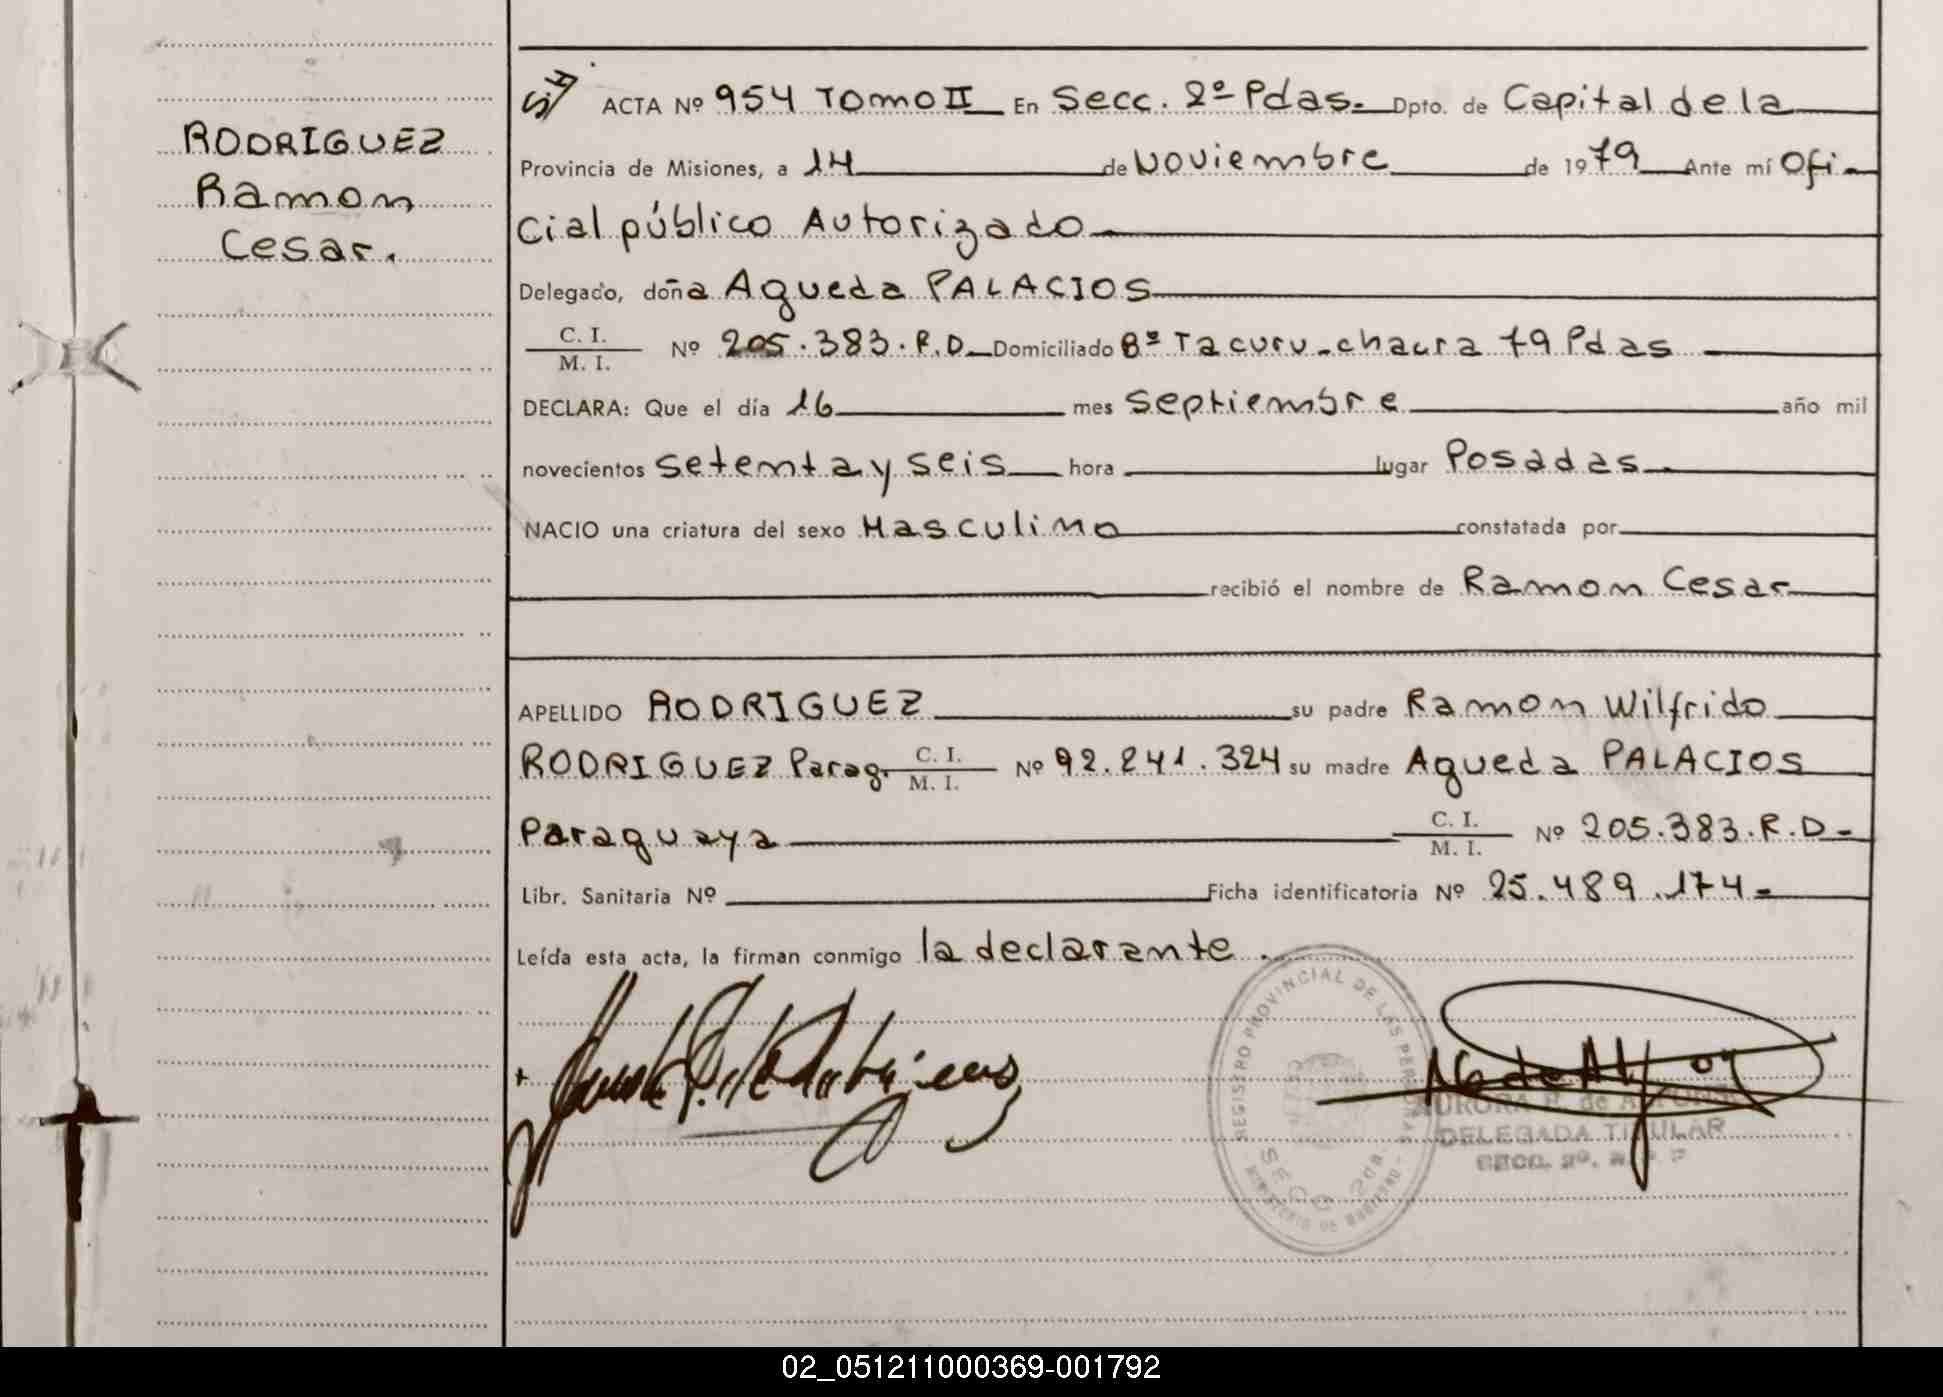 RODRIGUEZ
Ramon
Cesar.
ACTA Nº 954 Tomo II En Secc. 2ª Pdas. Dpto. de Capital de la
Provincia de Misiones, a 14 de Noviembre de 1979 Ante mí Ofi-
cial público Autorizado
Delegado, doña Agueda PALACIOS
C. I.
M. I. Nº 205.383.R.D Domiciliado Bº Tacuru-chacra 79 Pdas
DECLARA: Que el día 16 mes septiembre año mil
novecientos setenta y seis hora lugar Posadas
NACIO una criatura del sexo Masculino constatada por
recibió el nombre de Ramon Cesar
APELLIDO RODRIGUEZ su padre Ramon Wilfrido
RODRIGUEZ Parag. C. I. M. I. Nº 92.241.324 su madre Agueda PALACIOS
Paraguaya C. I. M. I. Nº 205.383.R.D-
Libr. Sanitaria Nº Ficha identificatoria Nº 25.489.174-
Leída esta acta, la firman conmigo la declarante.
REGISTRO PROVINCIAL DE LAS PERSONAS
SECC 2da.
MINISTERIO DE GOBIERNO
DELEGADA TITULAR
SECC. 2ª.
02_051211000369-001792